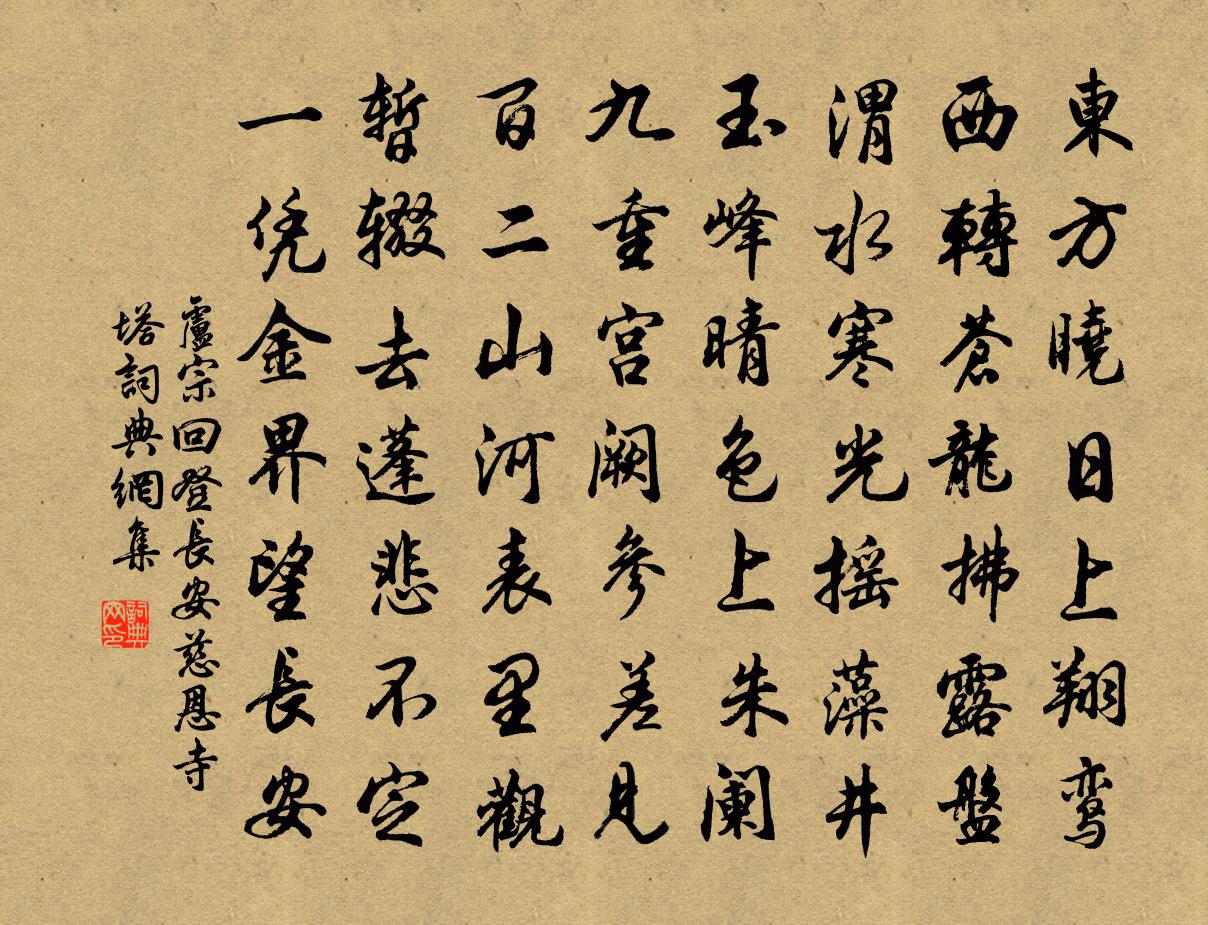 東方曉日上翔鸾
西轉蒼龍拂露盤
渭水寒光摇藻井
玉峰晴色上朱阑
九重宫阙參差見
百二山河表里觀
暫辍去蓬悲不定
一凭金界望長安
盧宗回登長安慈恩寺
塔詞典網集
詞典
网印